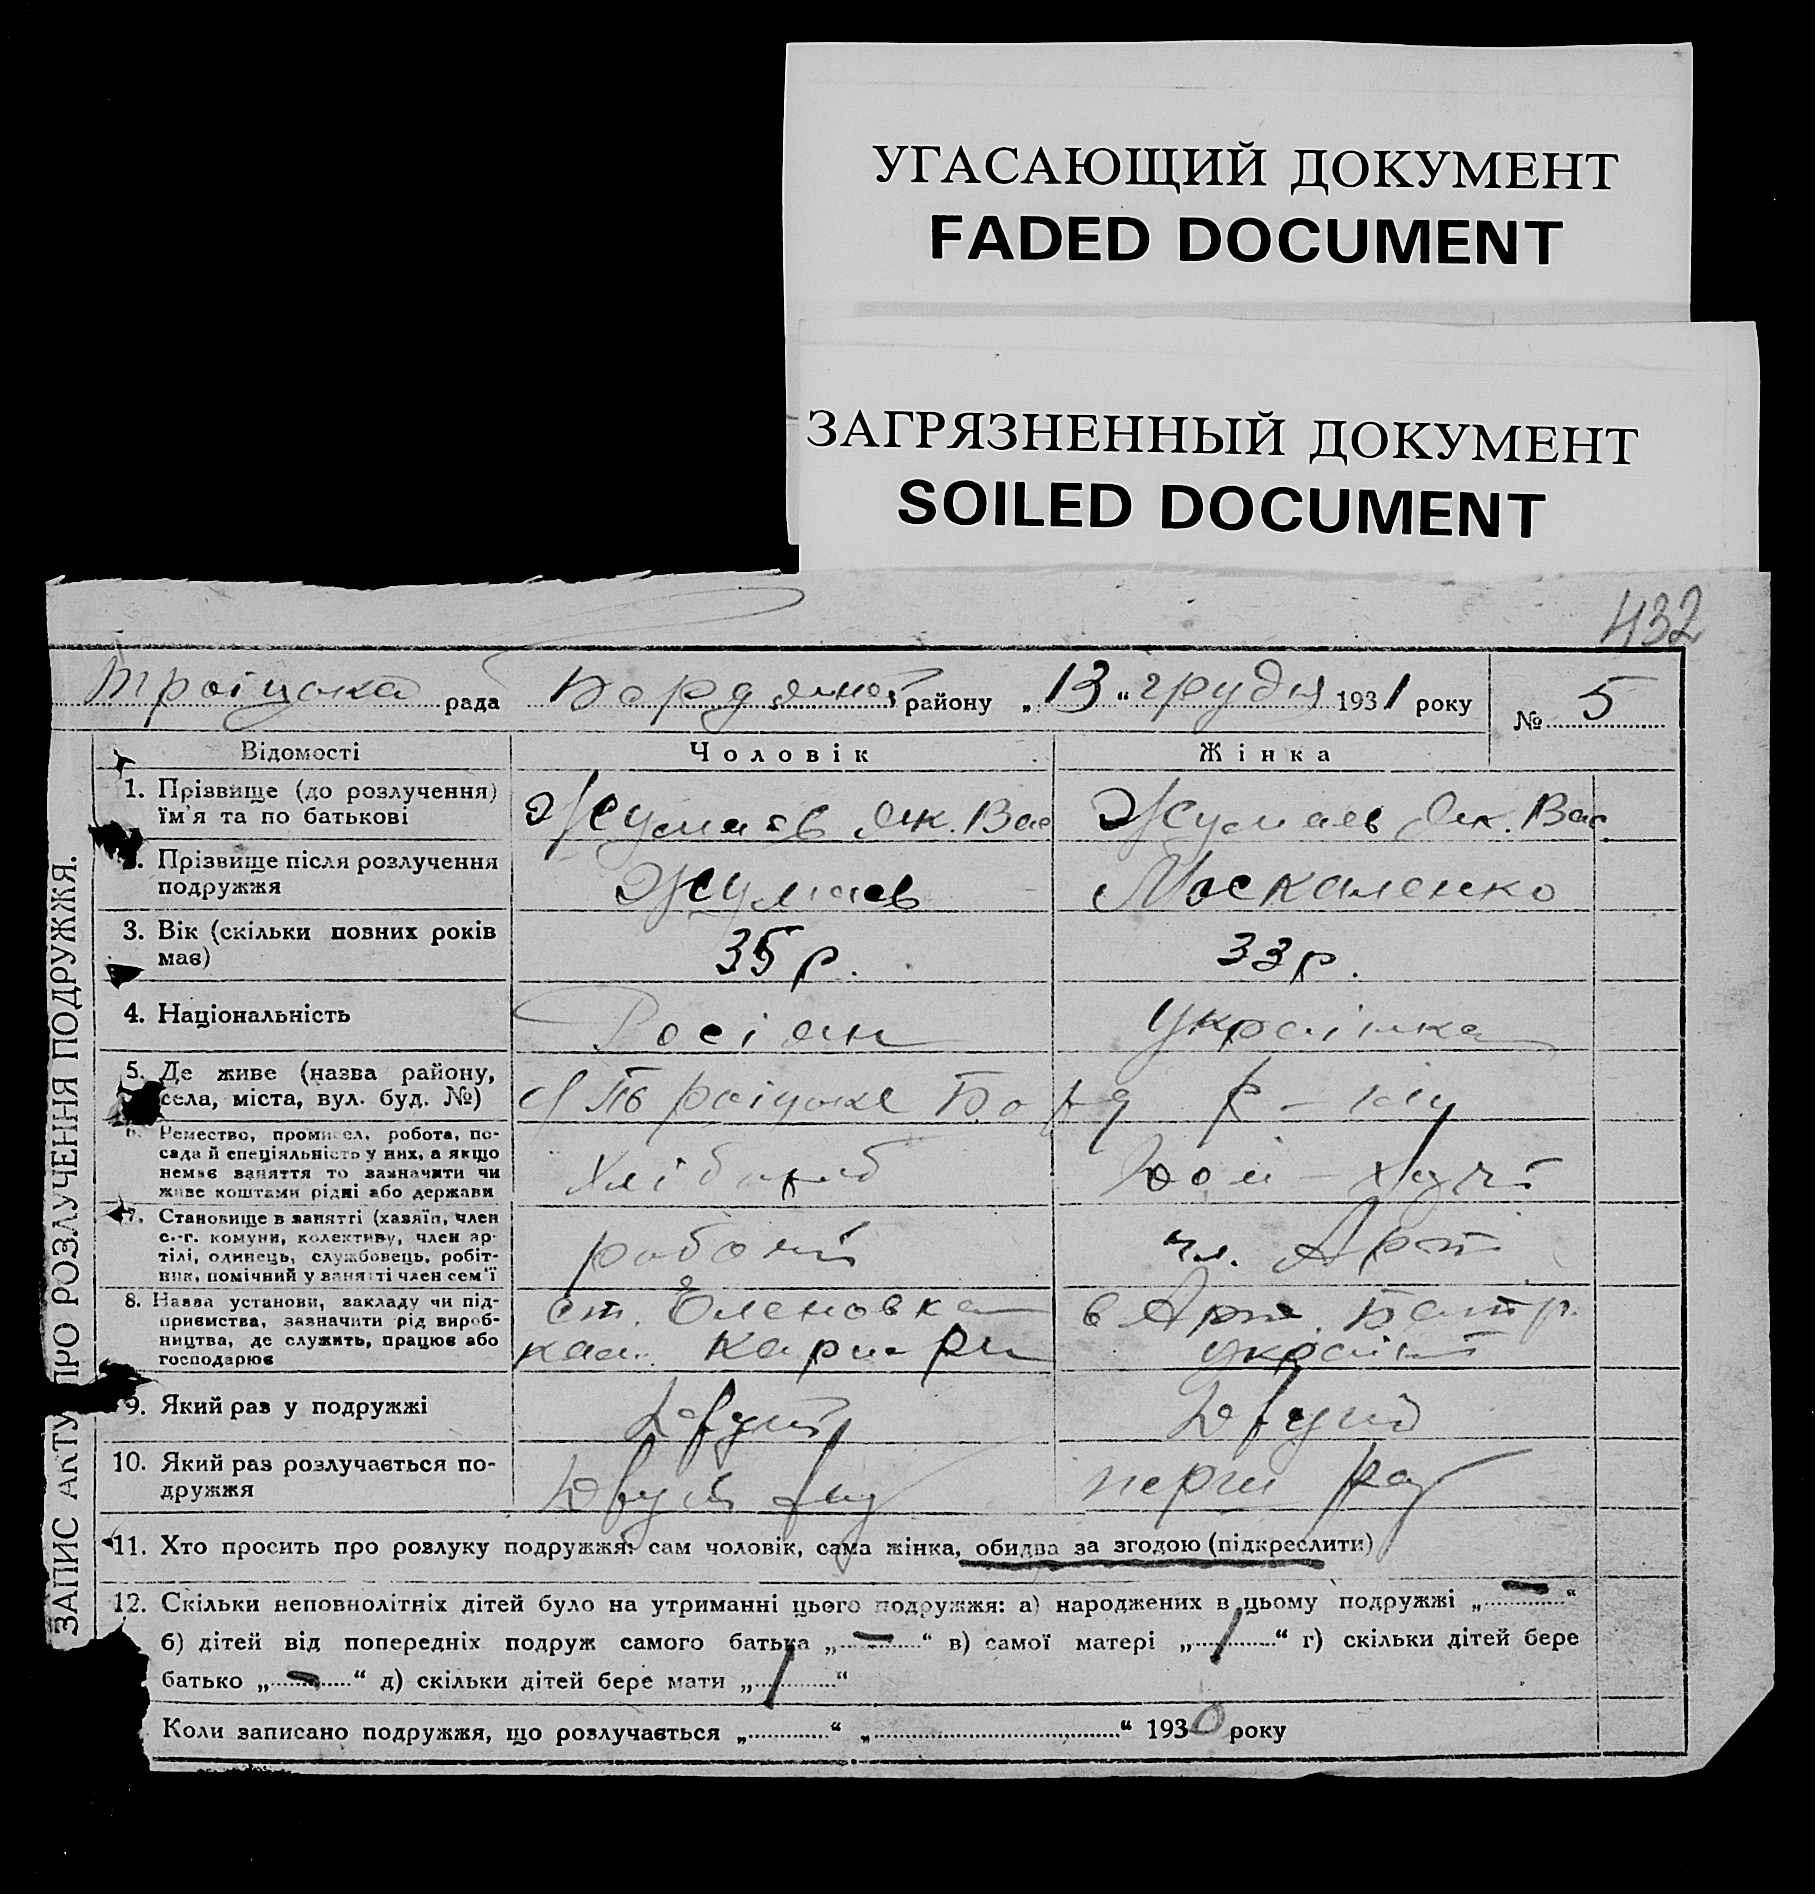 УГАСАЮЩИЙ ДОКУМЕНТ
FADED DOCUMENT
ЗАГРЯЗНЕННЫЙ ДОКУМЕНТ
SOILED DOCUMENT
432
Троіцока рада Бордянсь району „13“ грудня 1931 року № 5
ЗАПИС АКТУ ПРО РОЗЛУЧЕННЯ ПОДРУЖЖЯ.
Відомості Чоловік Жінка
1. Прізвище (до розлучення) їм'я та по батькові Жумаєв Як. Вас Жумаєв Як. Вас.
Прізвище після розлучення подружжя Жумаєв Москаленко
3. Вік (скільки повних років має) 35 р. 33 р.
4. Національність Росіян Українка
5. Де живе (назва району, села, міста, вул. буд. №) Троіцоке Борд р-ну
6. Ремество, промисел, робота, посада й спеціяльність у них, а якщо немає заняття то зазначити чи живе коштами рідні або держави Хлібороб
7. Становище в занятті (хазяїн, член с.-г. комуни, колективу, член артілі, одинець, службовець, робітник, помічний у занятті член сем'ї робочий чл. Арт
8. Назва установи, закладу чи підприємства, зазначити рід виробництва, де служить, працює або господарює ст. Еленовка карьєри в Арт.
9. Який раз у подружжі Другий Другий
10. Який раз розлучається подружжя Другий раз перш раз
11. Хто просить про розлуку подружжя: сам чоловік, сама жінка, обидва за згодою (підкреслити)
12. Скільки неповнолітніх дітей було на утриманні цього подружжя: а) народжених в цьому подружжі „—“
б) дітей від попередніх подруж самого батька „—“ в) самої матері „1“ г) скільки дітей бере
батько „—“ д) скільки дітей бере мати „1“
Коли записано подружжя, що розлучається „“ „“ 1930 року